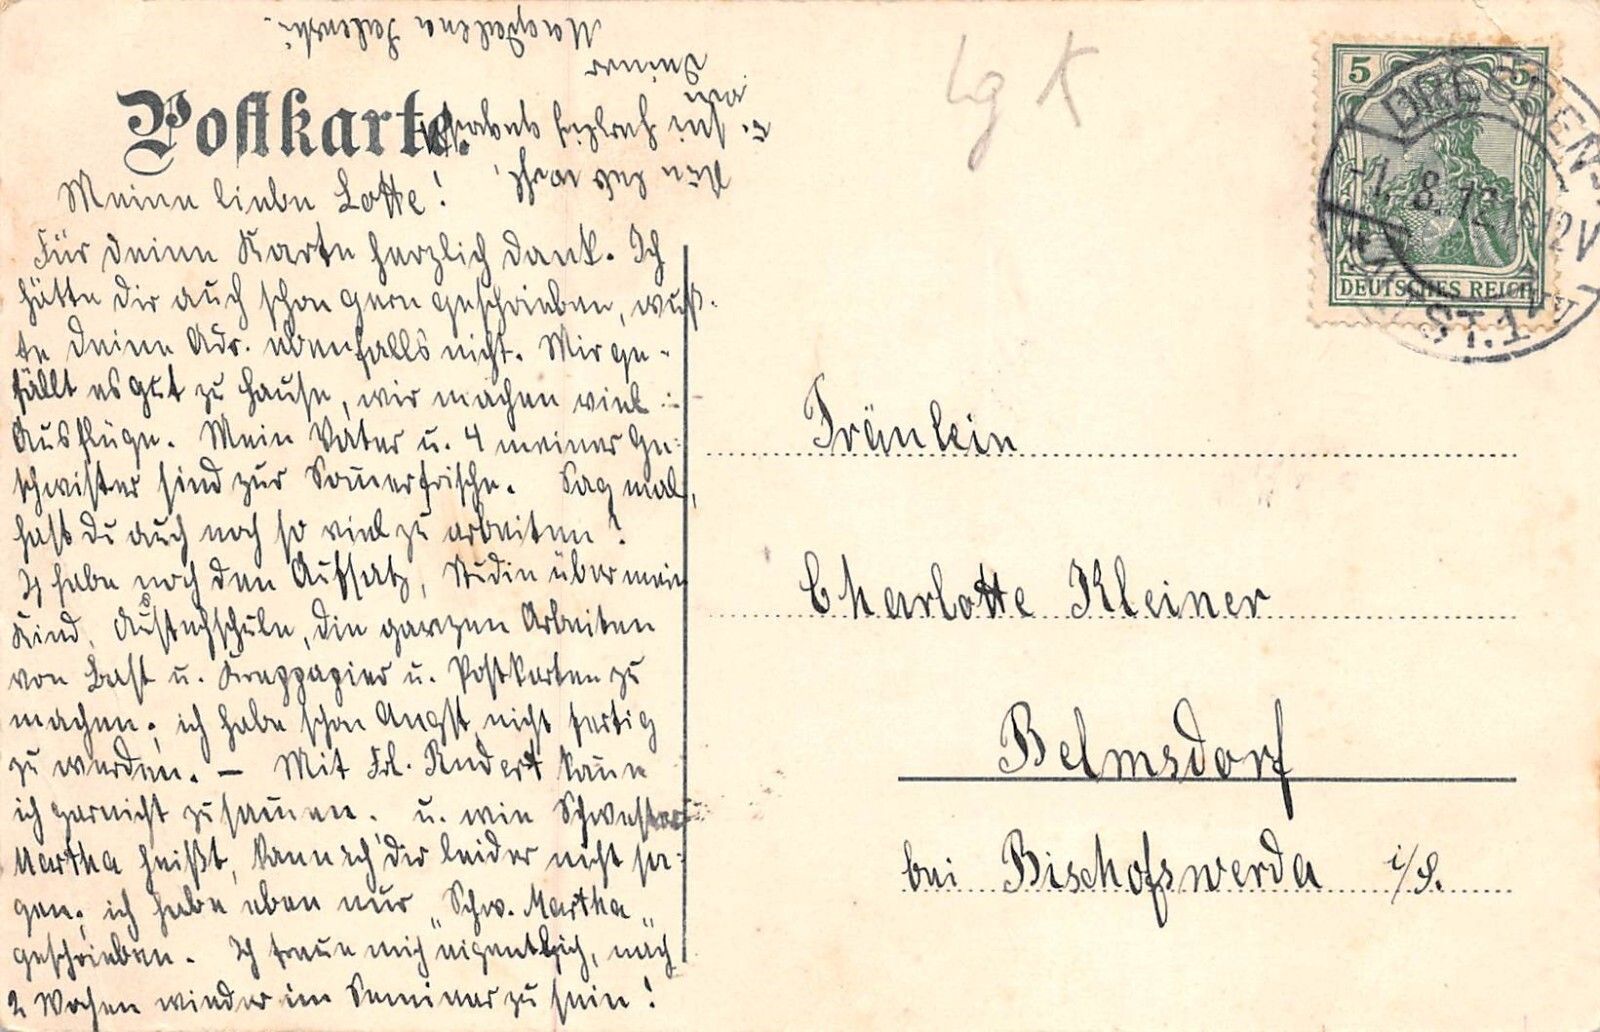 Postkarte.
Meine liebe Lotte!
Für deine Karte herzlich Dank. Ich
hätte dir auch schon gern geschrieben, wuß-
te deine Adr. ebenfalls nicht. Mir ge-
fällt es gut zu Hause, wir machen viel
Ausflüge. Mein Vater u. 4 meiner Ge-
schwister sind zur Som̄erfrische. Sag mal,
hast Du auch noch so viel zu arbeiten?
Ich habe noch den Aufsatz, Studie über mein
Kind, die ganzen Arbeiten
von Bast u. Kreppapier u. Postkarten zu
machen; ich habe schon Angst nicht fertig
zu werden. — Mit Frl. kan̄
ich garnicht zu u. wie Schwester
Martha heißt, kann ich dir leider nicht sa-
gen; ich habe eben nur „Schw. Martha„
geschrieben. Ich freue mich eigentlich, nach
2 Wochen wieder im Seminar zu sein!
Nun leb wohl,
u. sei herzlich gegrüßt
von
Deiner
Magdalena
Lg K
5 5
DEUTSCHES REICH
DRESDEN-
-1.8.12 11-12V
Fräulein
Charlotte Kleiner
Belmsdorf
bei Bischofswerda i/S.